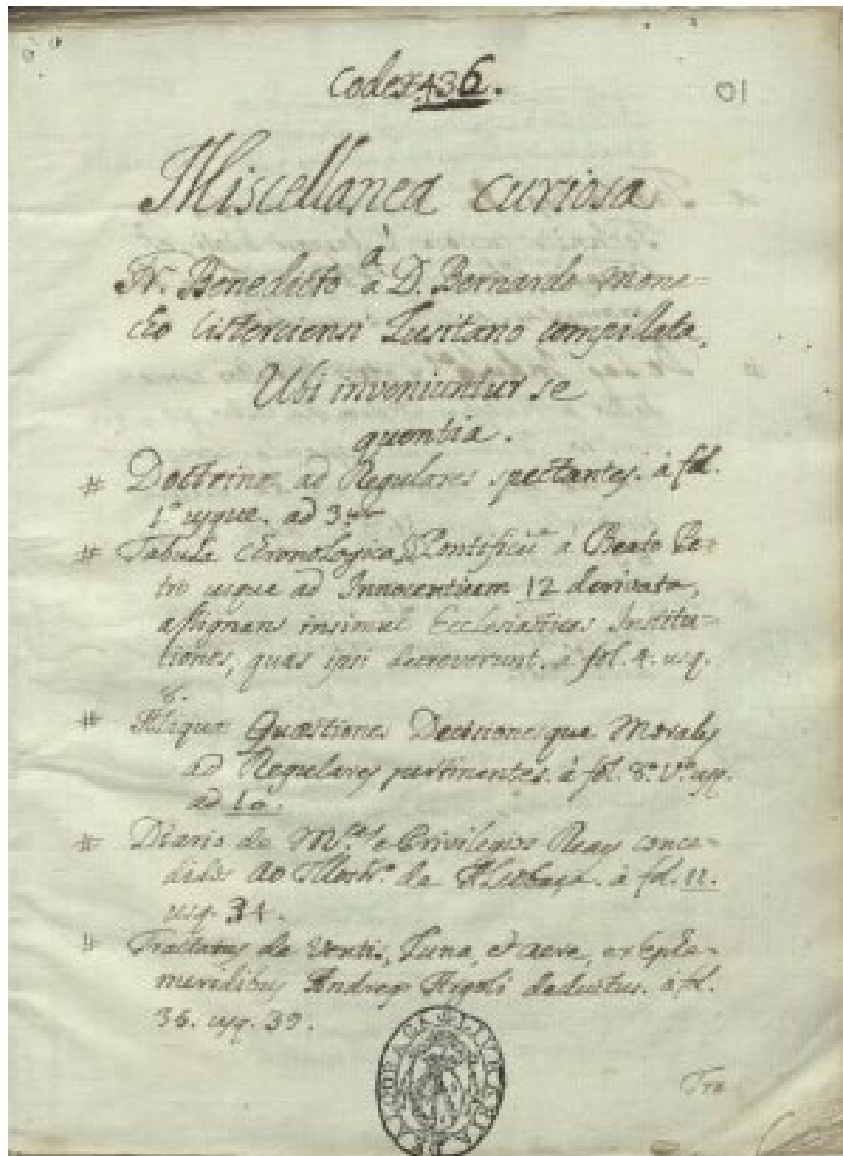 Codex 436.
Miscellanea curiosa
a
Fr. Benedicto a D. Bernardo mona-
cho Cisterciensi Lusitano compillata,
Ubi inveniuntur se
quentia.
# Doctrinæ ad Regulares spectantes. à fol.
1º usque. ad
# Tabula Chronologica Pontificũ à Beato Pe-
tro usque ad Innocentium 12 derivata,
assignans insimul Ecclesiasticas Institu-
tiones, quas ipsi decreverunt. à fol. 4. usq.
8.
# Aliquæ Quæstiones Decisionesque Morales
ad Regulares pertinentes. à fol. 8º Vº usq.
ad 10.
# Diario de M.ces e Privilegios Reaes conce-
didos ao Mostr.º de Alcobaça. à fol. 11.
usq. 34.
# Tractatus de Ventis, Luna, et Aere, ex Ephe-
meridibus Andreæ Argoli deductus. à fol.
36. usq. 39.
Tra